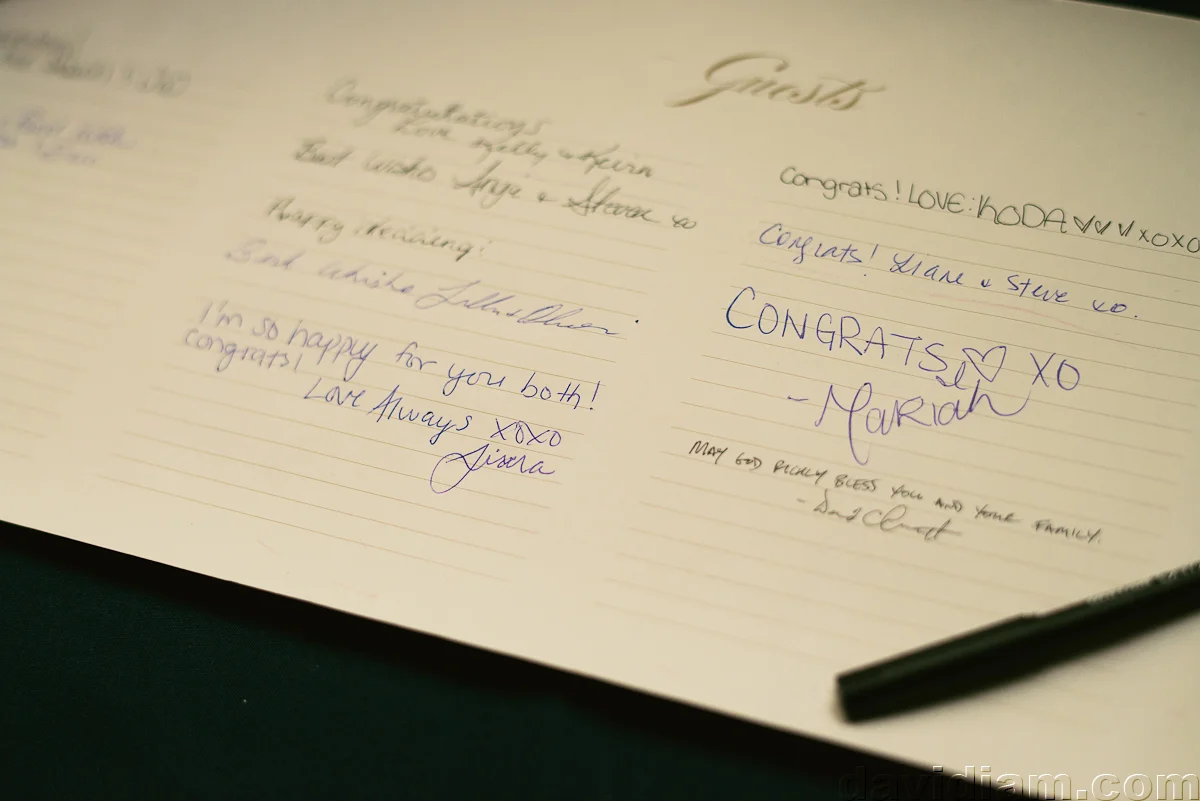 Guests
Congratulations
Love Kelly & Kevin
Best wishes Angie & Steven xo
Happy Wedding!
Best Wishes
I'm so happy for you both!
congrats!
Love Always XOXO
Congrats! LOVE: KODA ♡♡♡ xoxo
Congrats! Liane & Steve xo.
CONGRATS ♡ XO
- MARIAH
MAY GOD RICHLY BLESS YOU AND YOUR FAMILY.
- David
davidiam.com